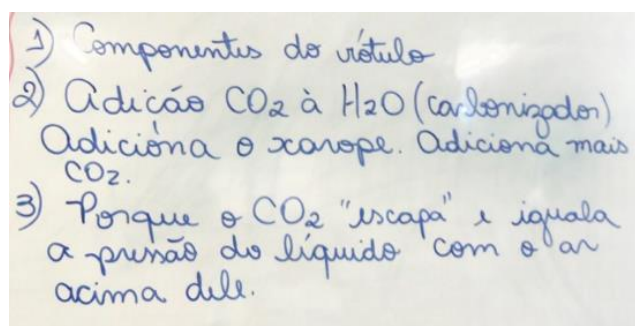 1) Componentes do rótulo
2) Adicão CO2 à H2O (carbonizador)
Adiciona o xarope. Adiciona mais
CO2.
3) Porque o CO2 "escapa" e iguala
a pressão do líquido com o ar
acima dele.